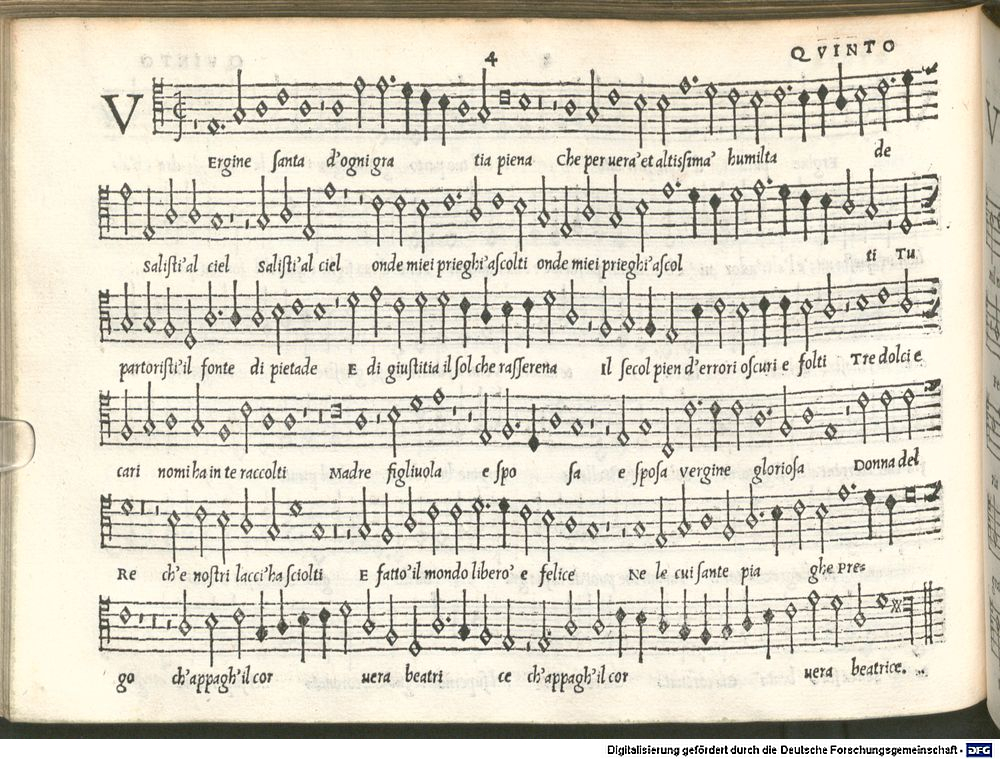 4 QVINTO
VErgine ſanta d'ogni gra tia piena Che per uera' et altiſsima' humilta de
Saliſti'al ciel Saliſti'al ciel onde miei prieghi'aſcolti onde miei prieghi'aſcol ti Tu
partoriſti'il fonte di pietade E di giuſtitia il ſol che raſſerena Il ſecol pien d'errori oſcuri e folti Tre dolci e
cari nomi ha in te raccolti Madre figliuola e ſpo ſa e ſpoſa vergine glorioſa Donna del
Re ch'e noſtri lacci'ha ſciolti E fatto'il mondo libero' e felice Ne le cui ſante pia ghe Pre=
go ch'appagh'il cor uera beatri ce ch'appagh'il cor uera beatrice.
Digitalisierung gefördert durch die Deutsche Forschungsgemeinschaft - DFG